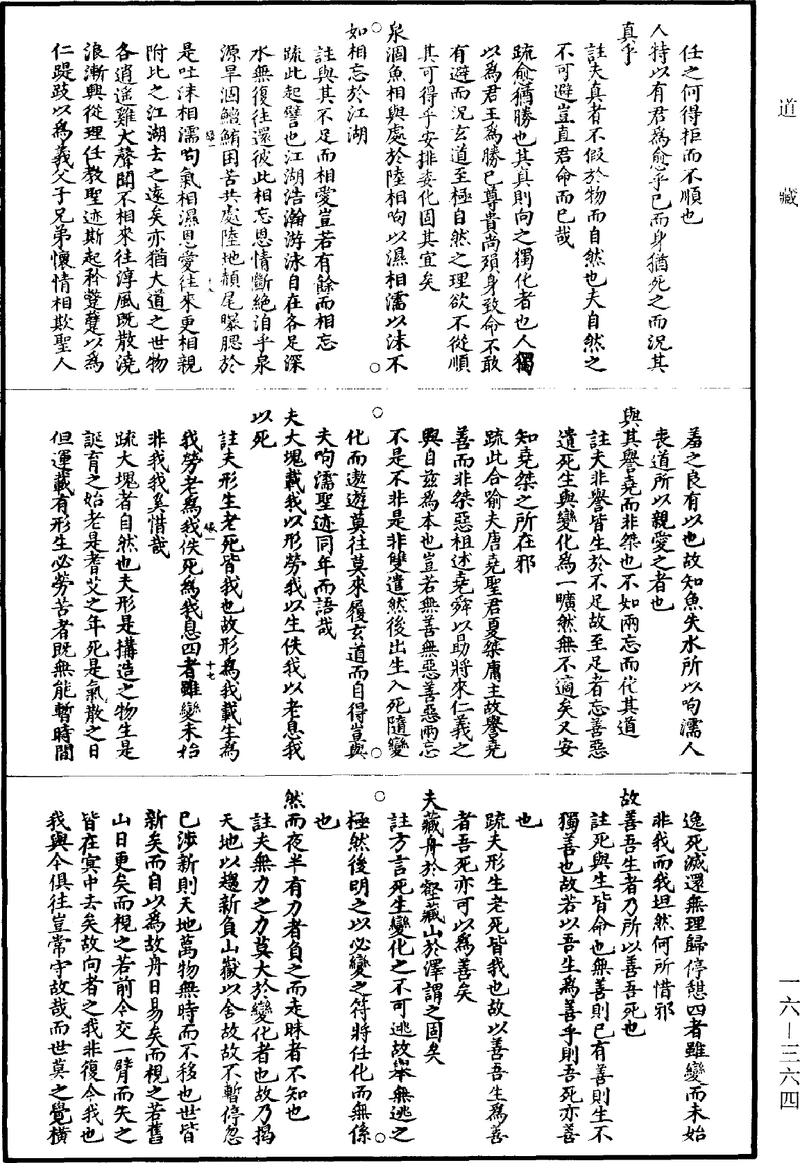 道藏
任之何得拒而不順也
人特以有君為愈乎已而身猶死之而況其
真乎
註夫真者不假於物而自然也夫自然之
不可避豈直君命而已哉
疏愈猶勝也其真則向之獨化者也人獨
以為君王為勝已尊貴尚殞身致命不敢
有避而況玄道至極自然之理欲不從順
其可得乎安排委化固其宜矣
泉涸魚相與處於陸相呴以濕相濡以沫不
如相忘於江湖
註與其不足而相愛豈若有餘而相忘
疏此起譬也江湖浩瀚游泳自在各足深
水無復往還彼此相忘恩情斷絕洎乎泉
源旱涸鱣鮪困苦共處陸地頳尾曝腮於
是吐沫相濡呴氣相濕恩愛往來更相親
附比之江湖去之遠矣亦猶大道之世物
各逍遙雞犬聲聞不相來往淳風既散澆
浪漸興從理任教聖迹斯起矜蹩躠以為
仁踶跂以為義父子兄弟懷情相欺聖人
羞之良有以也故知魚失水所以呴濡人
喪道所以親愛之者也
與其譽堯而非桀也不如兩忘而化其道
註夫非譽皆生於不足故至足者忘善惡
遺死生與變化為一曠然無不適矣又安
知堯桀之所在邪
疏此合喻夫唐堯聖君夏桀庸主故譽堯
善而非桀惡祖述堯舜以助將來仁義之
興自茲為本也豈若無善無惡善惡兩忘
不是不非是非雙遣然後出生入死隨變
化而遨遊莫往莫來履玄道而自得豈與
夫呴濡聖迹同年而語哉
夫大塊載我以形勞我以生佚我以老息我
以死
註夫形生老死皆我也故形為我載生為
我勞老為我佚死為我息四者雖變未始
非我我奚惜哉
疏大塊者自然也夫形是搆造之物生是
誕育之始老是耆艾之年死是氣散之日
但運載有形生必勞苦老既無能暫時閒
逸死滅還無理歸停憩四者雖變而未始
非我而我坦然何所惜邪
故善吾生者乃所以善吾死也
註死與生皆命也無善則已有善則生不
獨善也故若以吾生為善乎則吾死亦善
也
疏夫形生老死皆我也故以善吾生為善
者吾死亦可以為善矣
夫藏舟於壑藏山於澤謂之固矣
註方言死生變化之不可逃故舉無逃之
極然後明之以必變之符將任化而無係
也
然而夜半有力者負之而走昧者不知也
註夫無力之力莫大於變化者也故乃揭
天地以趨新負山嶽以舍故故不暫停忽
已涉新則天地萬物無時而不移也世皆
新矣而自以為故舟日易矣而視之若舊
山日更矣而視之若前今交一臂而失之
皆在冥中去矣故向者之我非復今我也
我與今俱往豈常守故哉而世莫之覺橫
一六—三六四